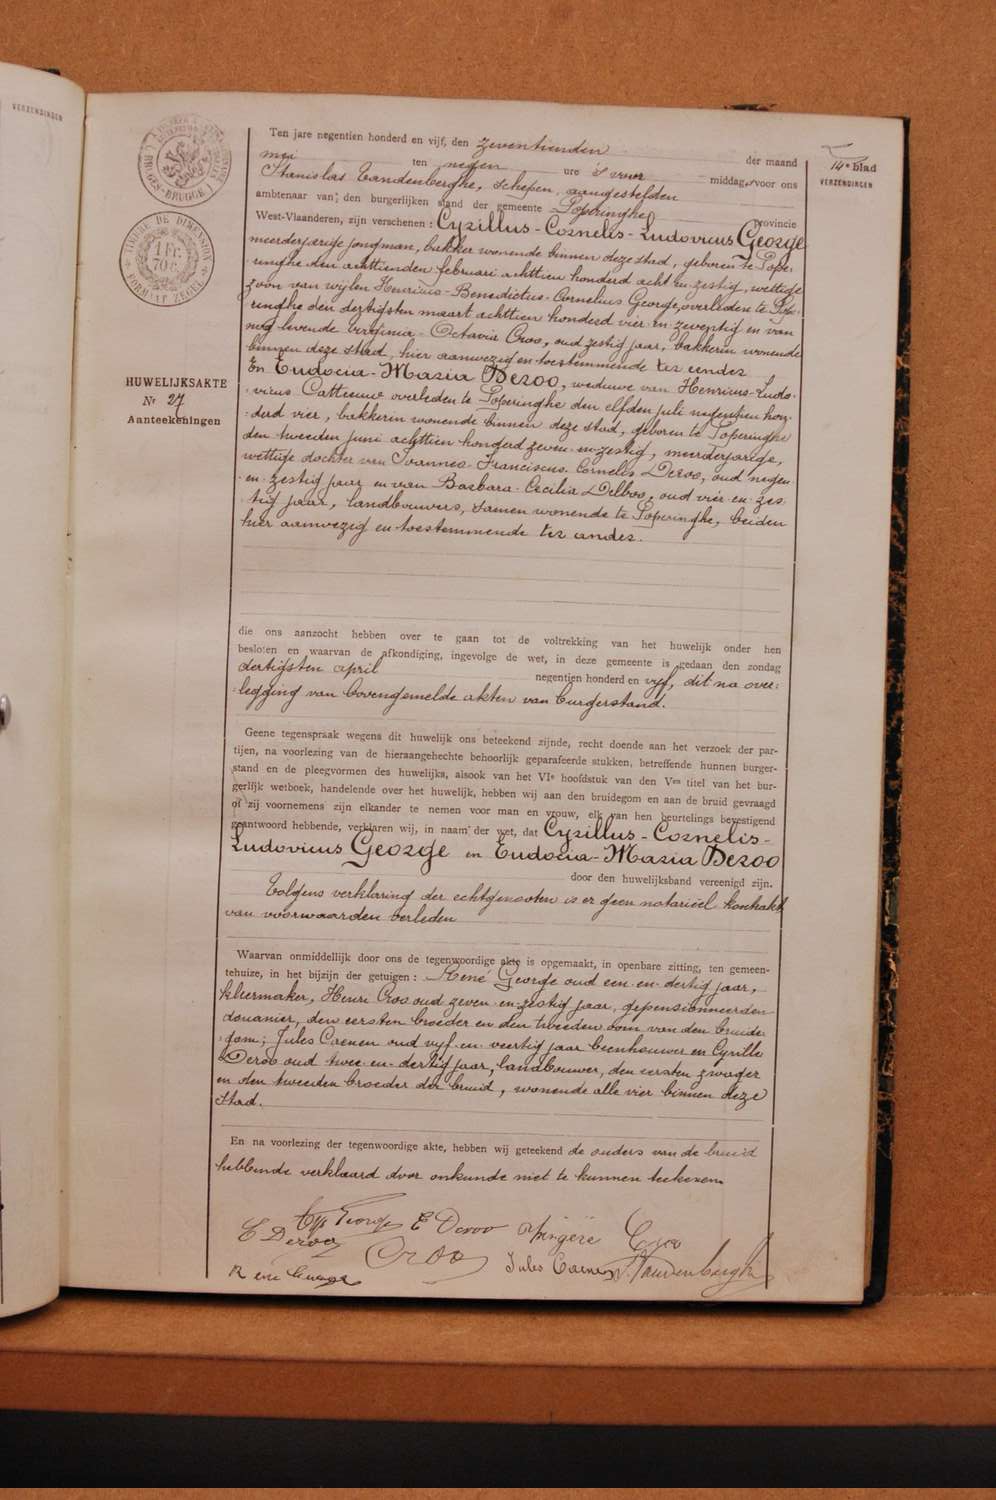 VERZENDINGEN
BRUGES-BRUGGE
TIMBRE DE DIMENSION
1 FR.
70 C.
FORMAAT ZEGEL
14e blad
VERZENDINGEN
HUWELIJKSAKTE
Nr 27
Aanteekeningen
Ten jare negentien honderd en vijf, den zeventienden der maand
mei ten negen ure 's voor middag, voor ons
Stanislas Vandenberghe, schepen, aangestelden
ambtenaar van den burgerlijken stand der gemeente Poperinghe provincie
West-Vlaanderen, zijn verschenen : Cyrillus-Cornelis-Ludovicus George
meerderjarige jongman, bakker wonende binnen deze stad, geboren te Pope-
ringhe den achttienden februari achttien honderd acht en zestig, wettige
zoon van wijlen Henricus-Benedictus-Cornelius George, overleden te Pope-
ringhe den dertigsten maart achttien honderd vier en zeventig en van
nog levende Virginia-Octavia Croo, oud zestig jaar, bakkerin wonende
binnen deze stad, hier aanwezig en toestemmende ter eender
En Eudocia-Maria Deroo, weduwe van Henricus-Ludo-
vicus Cattieuw overleden te Poperinghe den elfden juli negentien hon-
derd vier, bakkerin wonende binnen deze stad, geboren te Poperinghe
den tweeden juni achttien honderd zeven en zestig, meerderjarige,
wettige dochter van Joannes-Franciscus-Cornelis Deroo, oud negen
en zestig jaar en van Barbara-Cecilia Delboo, oud vier en zes-
tig jaar, landbouwers, samen wonende te Poperinghe, beiden
hier aanwezig en toestemmende ter ander.
die ons aanzocht hebben over te gaan tot de voltrekking van het huwelijk onder hen
besloten en waarvan de afkondiging, ingevolge de wet, in deze gemeente is gedaan den zondag
dertigsten april negentien honderd en vyf, dit na over-
legging van bovengemelde akten van burgerstand.
Geene tegenspraak wegens dit huwelijk ons beteekend zijnde, recht doende aan het verzoek der par-
tijen, na voorlezing van de hieraangehechte behoorlijk geparafeerde stukken, betreffende hunnen burger-
stand en de pleegvormen des huwelijks, alsook van het VIe hoofdstuk van den Ven titel van het bur-
gerlijk wetboek, handelende over het huwelijk, hebben wij aan den bruidegom en aan de bruid gevraagd
of zij voornemens zijn elkander te nemen voor man en vrouw, elk van hen beurtelings bevestigend
geantwoord hebbende, verklaren wij, in naam der wet, dat Cyrillus-Cornelis-
Ludovicus George en Eudocia-Maria Deroo
door den huwelijksband vereenigd zijn.
Volgens verklaring der echtgenooten is er geen notariëel kontrakt
van voorwaarden verleden
Waarvan onmiddellijk door ons de tegenwoordige akte is opgemaakt, in openbare zitting, ten gemeen-
tehuize, in het bijzijn der getuigen : René George oud een en dertig jaar,
kleermaker, Henri Croo oud zeven en zestig jaar, gepensionneerden
douanier, den eersten broeder en den tweeden oom van den bruide-
gom; Jules Caenen oud vyf en veertig jaar beenhouwer en Cyrille
Deroo oud twee en dertig jaar, landbouwer, den eersten zwager
en den tweeden broeder der bruid, wonende alle vier binnen deze
stad.
En na voorlezing der tegenwoordige akte, hebben wij geteekend de ouders van de bruid
hebbende verklaard door onkunde niet te kunnen teekenen
Cyr George E Deroo Croo
C Deroo Croo Jules Caenen S. Vandenberghe
René George